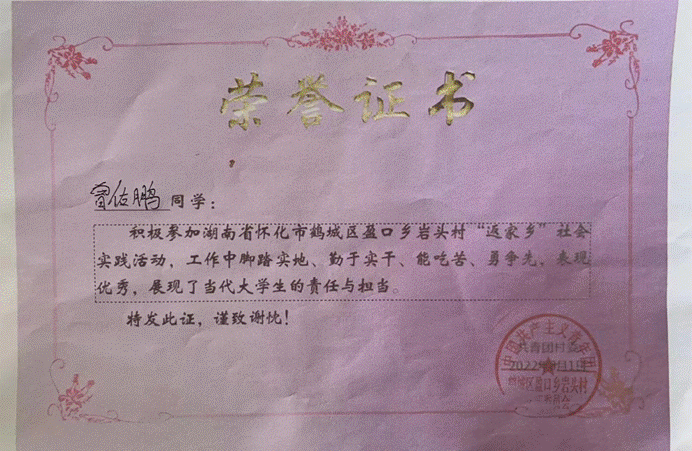 荣誉证书
曾佑鹏 同学：
积极参加湖南省怀化市鹤城区盈口乡岩头村“返家乡”社会
实践活动，工作中脚踏实地、勤于实干、能吃苦、勇争先、表现
优秀，展现了当代大学生的责任与担当。
特发此证，谨致谢忱！
中国共产主义青年团
共青团村委
鹤城区盈口乡岩头村